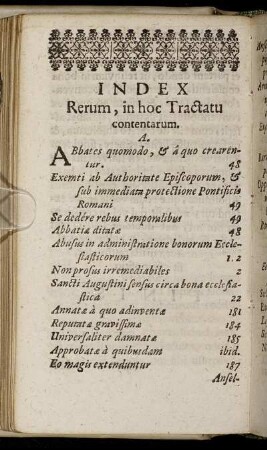 INDEX
Rerum, in hoc Tractatu
contentarum.
A.
ABbates quomodo, & à quo crearen-
tur. 48
Exemti ab Authoritate Episcoporum, &
sub immediata protectione Pontificis
Romani 49
Se dedére rebus temporalibus 49
Abbatiæ ditatæ 48
Abusus in administratione bonorum Eccle-
siasticorum 1.2
Non prosus irremediabiles 2
Sancti Augustini sensus circa bona ecclesia-
stica 22
Annatæ à quo adinventæ 181
Reputatæ gravissimæ 184
Universaliter damnatæ 185
Approbatæ à quibusdam ibid.
Eo magis extenduntur 187
Ansel-